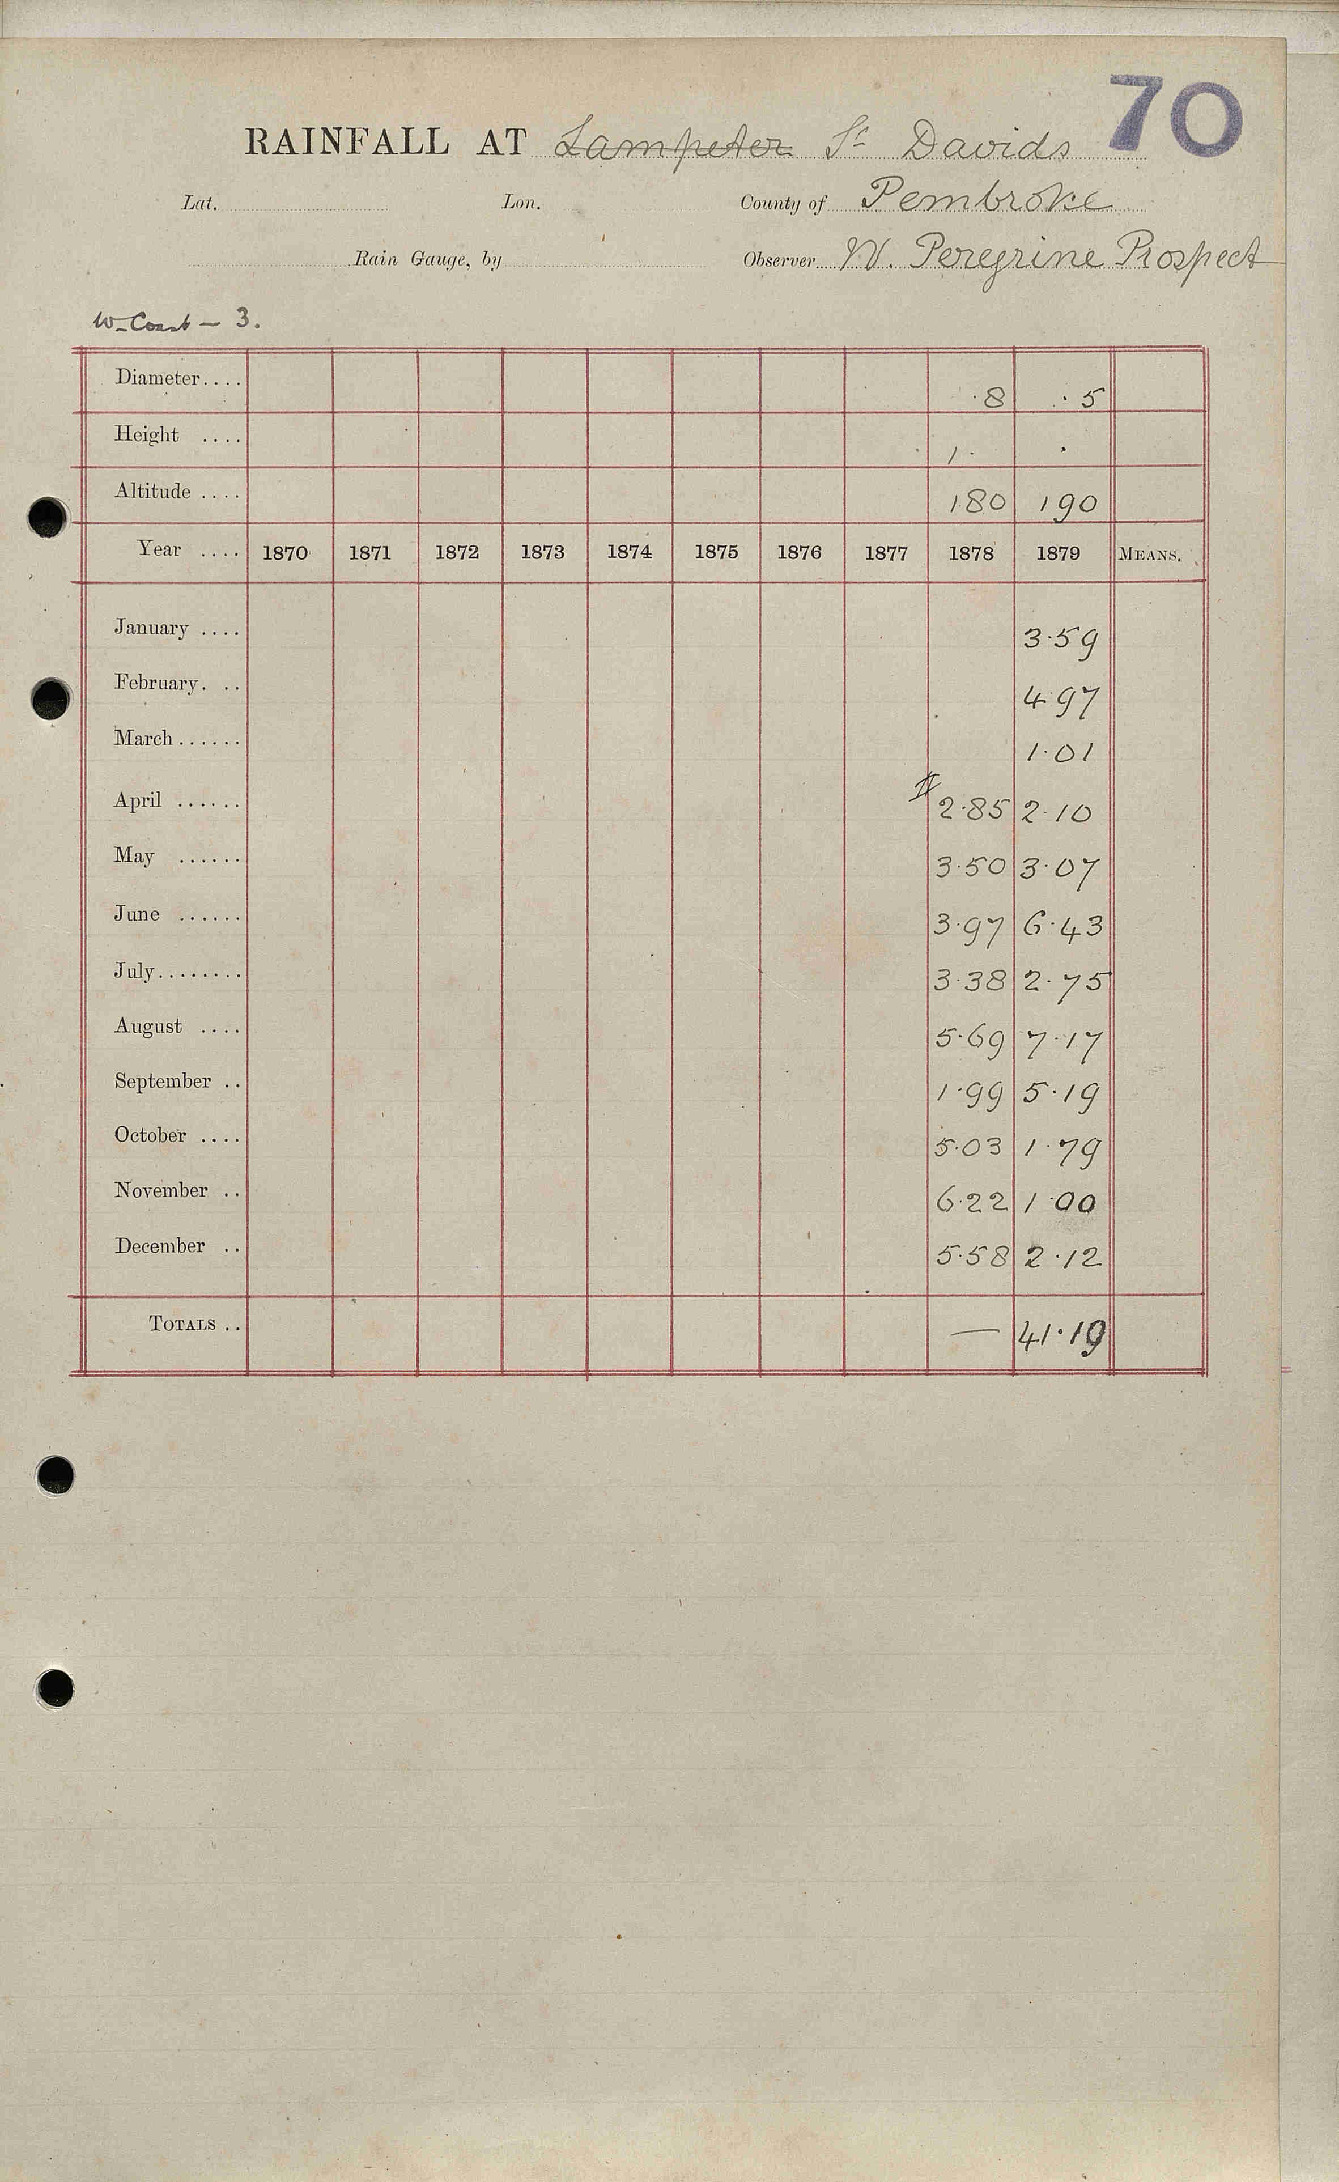 70
RAINFALL AT Lampeter St Davids
Lat. Lon. County of Pembroke
Rain Gauge, by Observer W. Peregrine Prospect
W. Coast - 3.
Diameter.... ·8 ·5
Height .... 1· ·
Altitude .... 180 190
Year .... 1870 1871 1872 1873 1874 1875 1876 1877 1878 1879 MEANS.
January .... 3·59
February. .. 4·97
March...... 1·01
April ...... 2·85 2·10
May ...... 3·50 3·07
June ...... 3·97 6·43
July........ 3·38 2·75
August .... 5·69 7·17
September .. 1·99 5·19
October .... 5·03 1·79
November .. 6·22 1·00
December .. 5·58 2·12
TOTALS .. — 41·19